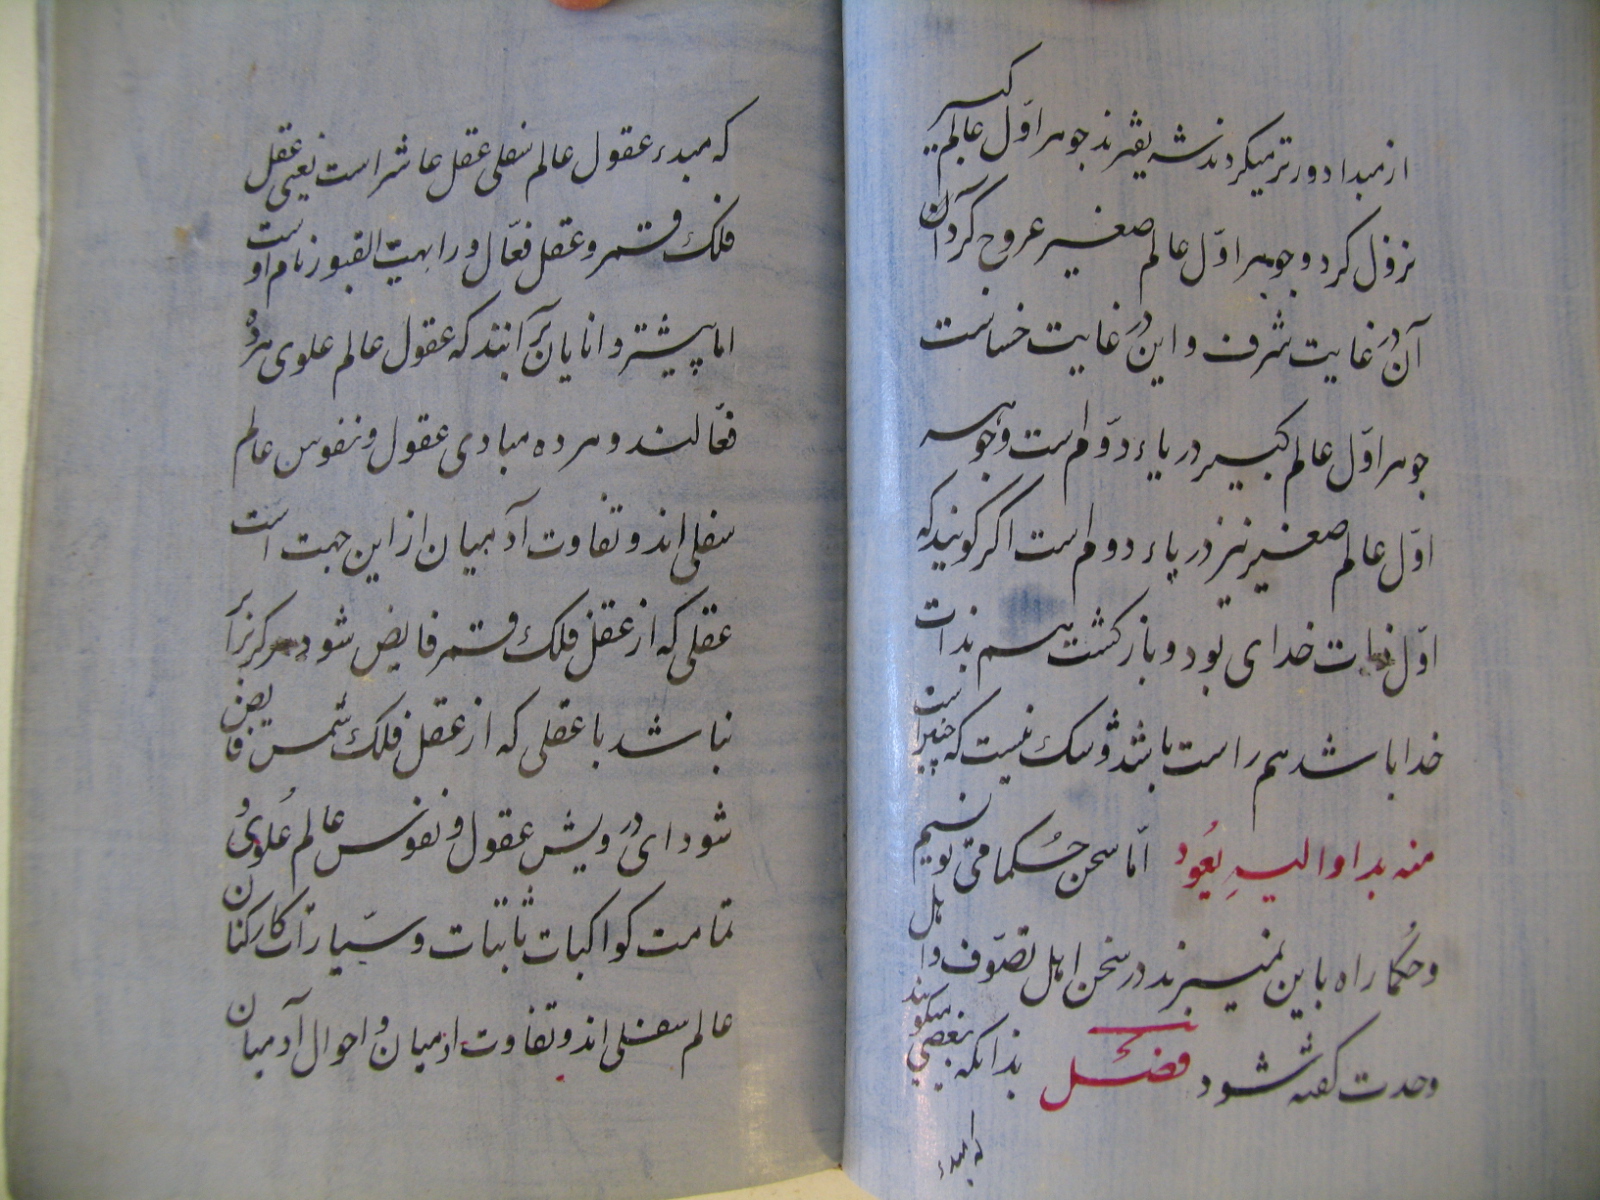 از مبدا دورتر میکردند شریفترند جوهر اوّل عالم کبیر
نزول کرد و جوهر اوّل عالم صغیر عروج کرد آن
آن در غایت شرف و این در غایت خساست
جوهر اوّل عالم کبیر دریاء دوّم است وجوهر
اوّل عالم صغیر نیز دریاء دوم است اکر کویند که
اوّل ذات خدای بود و بازکشت هم بذات
خدا باشد هم راست باشد و شک نیست که چنین است
منه بدا و الیهِ یَعُود امّا سخن حُکما می نویسیم
و حُکما راه باین نمیبرند در سخن اهل تصوّف و اهل
وحدت کفته شود فصل بدانکه بعضی میکویند
که مبدء
که مبدء عقول عالم سفلی عقل عاشر است یعنی عقل
فلک قمر و عقل فعّال و راهب القبور نام اوست
اما پیشتر دانایان برآنند که عقول عالم علوی هرده
فعّالند و هر ده مبادی عقول و نفوس عالم
سفلی اند و تفاوت آدمیان از این جهت است
عقلی که از عقل فلک قمر فایض شود هرکز برابر
نباشد با عقلی که از عقل فلک شمس فایض
شود ای درویش عقول و نفوس عالم عُلوی و
تمامت کواکبات ثابتات و سیّارات کارکنان
عالم سفلی اند و تفاوت ادمیان و احوال آدمیان